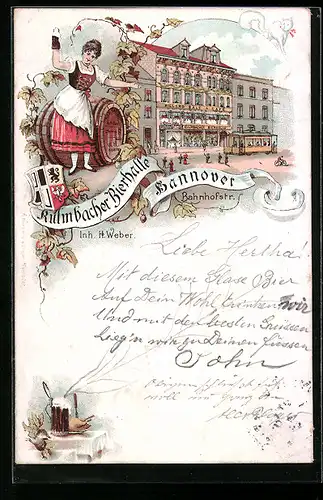 Kulmbacher Bierhalle
Hannover
Bahnhofstr.
Inh. H. Weber.
Liebe Hertha!
Mit diesem Glase Bier
Auf Dein Wohl trinken wir
Und mit den besten Grüssen
Liegen wir zu Deinen Füssen
John